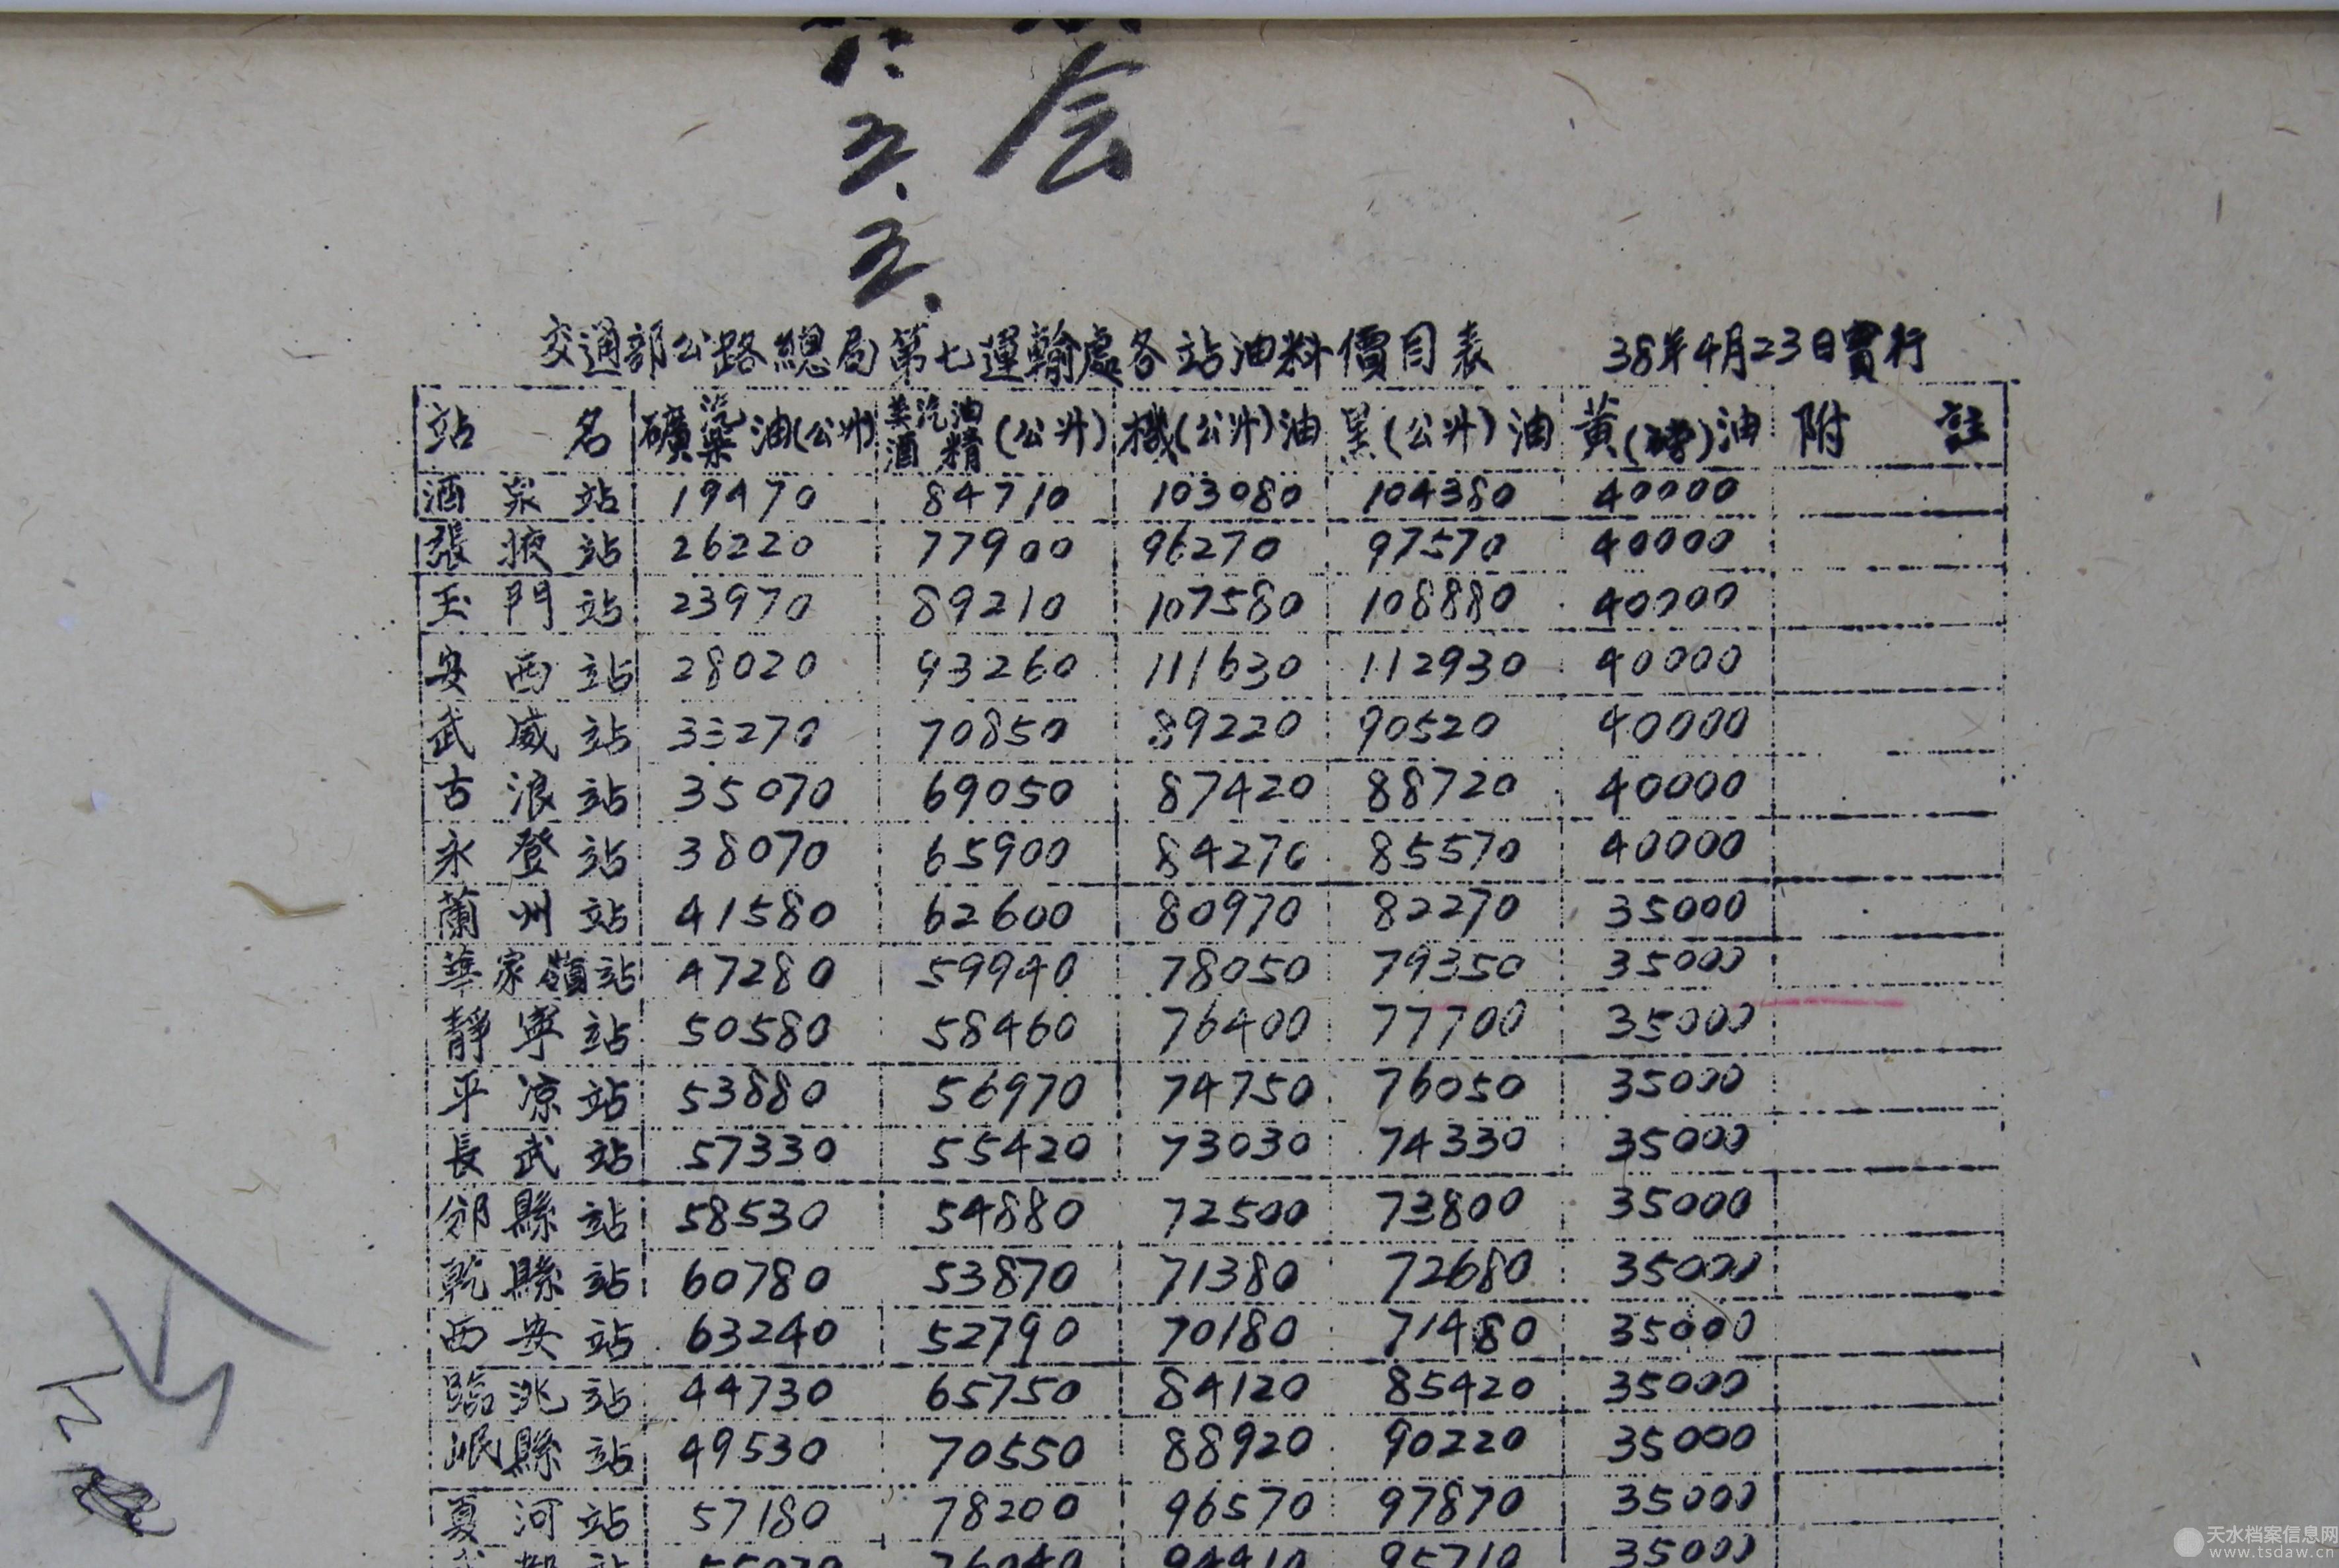 会
六.
五.
五.
交通部公路總局第七運輸處各站油料價目表 38年4月23日實行
站名 礦汽柴油(公升) 美汽油酒精(公升) 機(公升)油 黑(公升)油 黃(磅)油 附註
酒泉站 19470 84710 103080 104380 40000
張掖站 26220 77900 96270 97570 40000
玉門站 23970 89210 107580 108880 40000
安西站 28020 93260 111630 112930 40000
武威站 33270 70850 89220 90520 40000
古浪站 35070 69050 87420 88720 40000
永登站 38070 65900 84270 85570 40000
蘭州站 41580 62600 80970 82270 35000
華家嶺站 47280 59940 78050 79350 35000
靜寧站 50580 58460 76400 77700 35000
平凉站 53880 56970 74750 76050 35000
長武站 57330 55420 73030 74330 35000
邠縣站 58530 54880 72500 73800 35000
乾縣站 60780 53870 71380 72680 35000
西安站 63240 52790 70180 71480 35000
臨洮站 44730 65750 84120 85420 35000
岷縣站 49530 70550 88920 90220 35000
夏河站 57180 78200 96570 97870 35000
站 76040 94410 95710 35000
天水档案信息网
www.tsdaw.cn